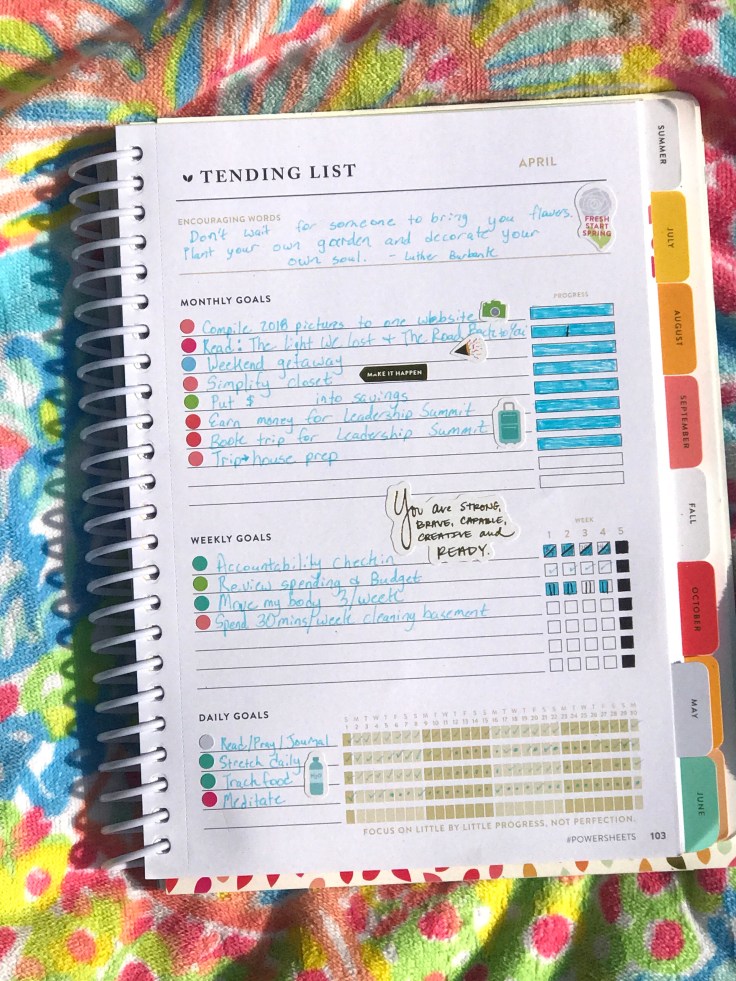 TENDING LIST APRIL
ENCOURAGING WORDS
Don't wait for someone to bring you flowers.
Plant your own garden and decorate your
own soul. - Luther Burbank
FRESH
START
SPRING
MONTHLY GOALS PROGRESS
Compile 2018 pictures to one website
Read: The Light We Lost + The Road Back to You
Weekend getaway
Simplify closet
MAKE IT HAPPEN
Put $ into savings
Earn money for Leadership Summit
Book trip for Leadership Summit
Trip + house prep
You are STRONG,
BRAVE, CAPABLE,
CREATIVE and
READY.
WEEKLY GOALS WEEK
1 2 3 4 5
Accountability Check in
Review spending & Budget
Move my body 3/week
Spend 30 mins/week cleaning basement
DAILY GOALS
S M T W T F S S M T W T F S S M T W T F S S M T W T F S S M
1 2 3 4 5 6 7 8 9 10 11 12 13 14 15 16 17 18 19 20 21 22 23 24 25 26 27 28 29 30
Read/Pray/Journal
Stretch daily
Track food
Meditate
FOCUS ON LITTLE BY LITTLE PROGRESS, NOT PERFECTION.
#POWERSHEETS 103
SUMMER
JULY
AUGUST
SEPTEMBER
FALL
OCTOBER
MAY
JUNE